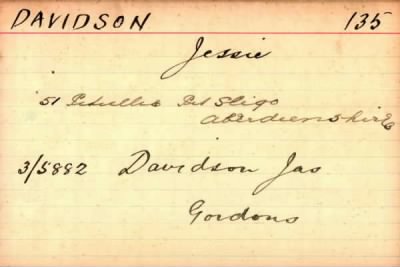 DAVIDSON 135
Jessie
51 Pitullie Pit Sligo
Aberdeenshire
3/5882 Davidson Jas
Gordons